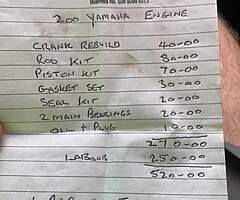 200 YAMAHA ENGINE
CRANK REBUILD 40-00
ROD KIT 80-00
PISTON KIT 70-00
GASKET SET 30-00
SEAL KIT 20-00
2 MAIN BEARINGS 20-00
OIL + PLUG 10-00
270-00
LABOUR 250-00
520-00